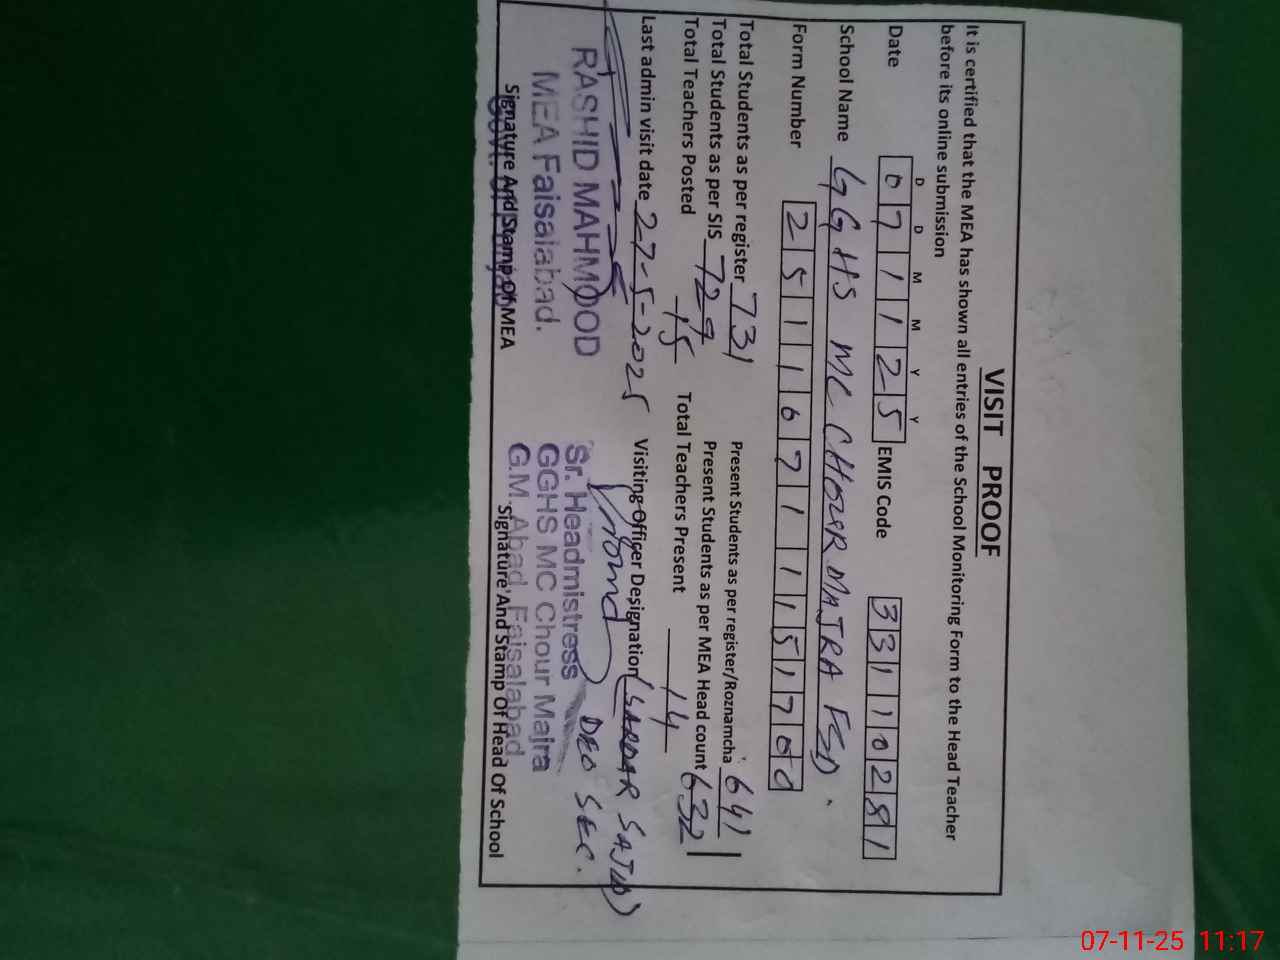 VISIT PROOF
It is certified that the MEA has shown all entries of the School Monitoring Form to the Head Teacher
before its online submission
D D M M Y Y
Date 071125 EMIS Code 33110281
School Name GGHS MC CHOUR MAJRA FSD.
Form Number 2511671115700
Total Students as per register 731 Present Students as per register/Roznamcha 641
Total Students as per SIS 729 Present Students as per MEA Head count 632
Total Teachers Posted 15 Total Teachers Present 14
Last admin visit date 27-5-2025 Visiting Officer Designation (SARDAR SAJID)
DEO SEC.
RASHID MAHMOOD
MEA Faisalabad.
Signature And Stamp Of MEA
Sr. Headmistress
GGHS MC Chour Majra
G.M.Abad, Faisalabad
Signature And Stamp Of Head Of School
07-11-25 11:17